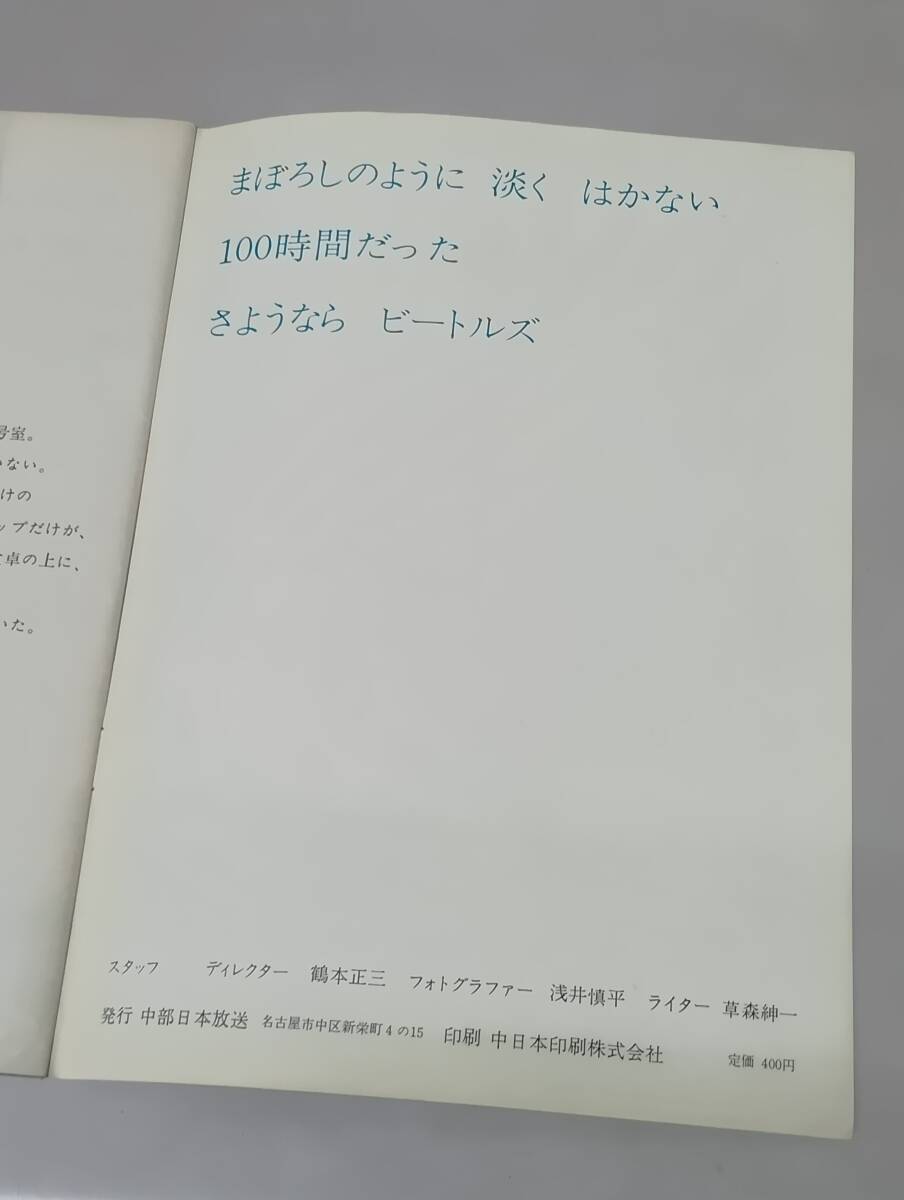 号室。
ない。
けの
ップだけが、
卓の上に、
いた。
まぼろしのように 淡く はかない
100時間だった
さようなら ビートルズ
スタッフ ディレクター 鶴本正三 フォトグラファー 浅井慎平 ライター 草森紳一
発行 中部日本放送 名古屋市中区新栄町4の15 印刷 中日本印刷株式会社 定価 400円